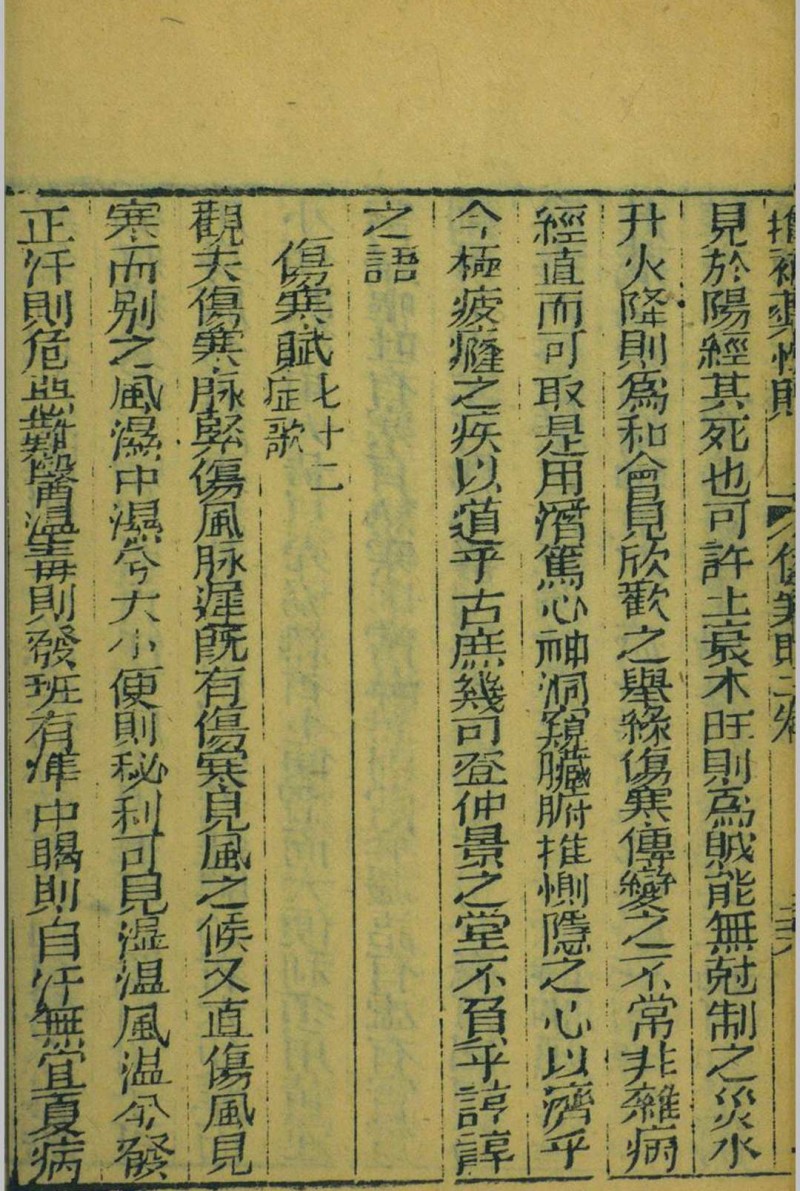 見於陽經其死也可許土衰木旺則為賊能無尅制之災水
升火降則為和會見欣歡之舉緣傷寒傳變之不常非雜病
經直而可取是用潛篤心神洞窺臟腑推惻隱之心以濟乎
今極疲癃之疾以道乎古庶幾可登仲景之堂不負乎諄諄
之語
傷寒賦七十二症歌
觀夫傷寒脉緊傷風脉遲既有傷寒見風之候又直傷風見
寒而別之風濕中濕兮大小便則秘利可見濕溫風溫兮發
正汗則危與難醫溫毒則發班有準中暍則自汗無宜夏病